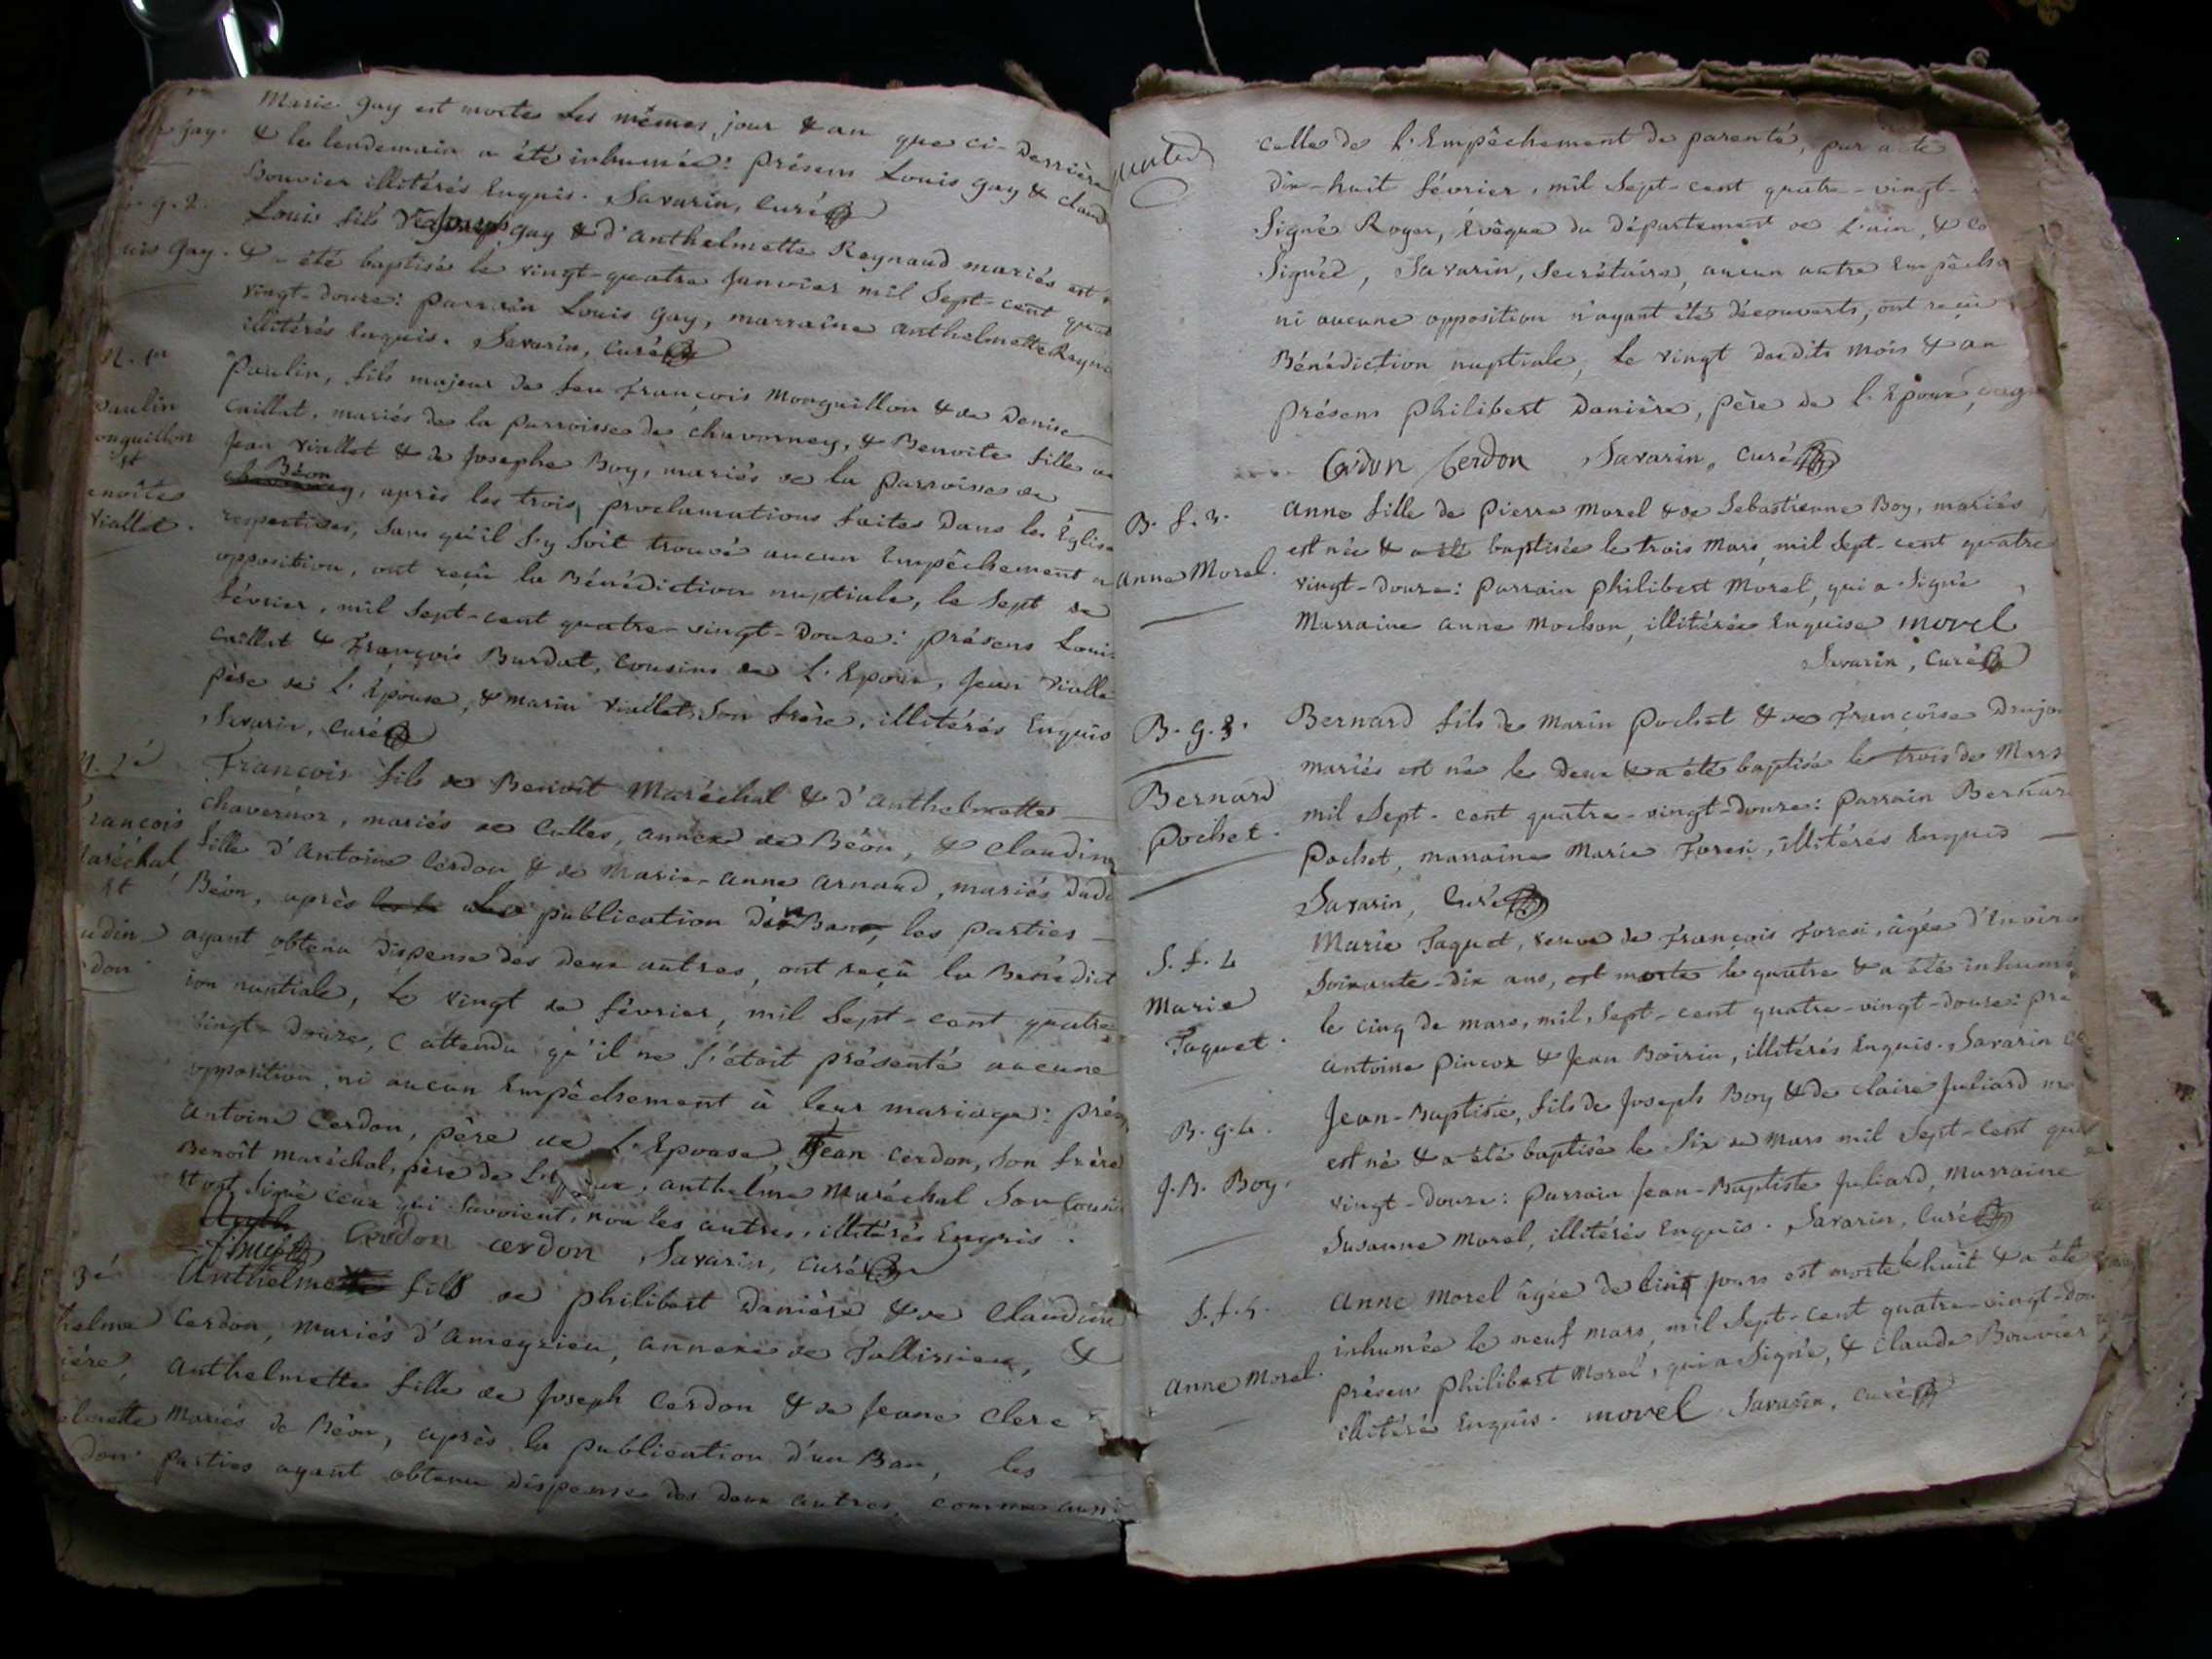 Marie gay est morte les mêmes jour & an que ci-derrière
gay.
& le lendemain a été inhumée: présens Louis gay & claud
Bouvier illitérés Enquis. Savarin, curé
g. 2.
Louis fils de Joseph gay & d'anthelmette Reynaud mariés est
gay.
& été baptisé le vingt-quatre janvier mil Sept-cent
vingt-douze: parrain Louis gay, marraine anthelmette Reyn
illitérés Enquis. Savarin, curé
paulin, fils majeur de feu françois Monguillon & de Denise
paulin
caillat, mariés de la parroisse de chavornay, & Benoite fille
onguillon
jean viallet & de josephe Boy, mariés de la parroisse de
et
Béon
enoite
, après les trois proclamations faites dans les Eglise
viallet.
respectives, sans qu'il s'y soit trouvé aucun Empêchement
opposition, ont reçû la Bénédiction nuptiale, le Sept de
février, mil Sept-cent quatre-vingt-douze: présens Loui
caillat & françois Burdat, cousins de l'Epoux, jean vialle
père de l'Epouse, & marin viallet son frère, illitérés Enquis
Savarin, curé
françois fils de Benoît Maréchal & d'anthelmette
chavernoz, mariés de Culles, annexe de Béon, & claudin
rançois
fille d'antoine Cerdon & de Marie-anne arnaud, mariés dud
aréchal
et
Béon, après publication d'un Ban, les parties
udin
ayant obtenu dispense des deux autres, ont reçû la Bénédict
don
ion nuptiale, le vingt de février, mil Sept-cent quatre
vingt-douze, attendu qu'il ne s'étoit présenté aucune
opposition, ni aucun Empêchement à leur mariage: prés
antoine Cerdon, père de l'Epouse, Jean Cerdon, son frère
Benoît maréchal, père de l'Epoux, anthelme Maréchal Son Cousi
et ont Signé ceux qui Savoient, non les autres, illitérés Enquis.
Cerdon cerdon Savarin, curé
3é
anthelme fils de philibert Danière & de Claudine
helme
Cerdon, mariés d'ameyzieu, annexe de Tallissieu, &
ière,
anthelmette fille de joseph Cerdon & de jeane Clere
elmette
mariés de Béon, après la publication d'un Ban, les
don
parties ayant obtenu dispense des deux autres, comme aussi
celle de l'Empêchement de parenté, par acte
dix-huit février, mil Sept-cent quatre-vingt-
Signé Royer, Evêque du Département de l'ain, & co
Signéd, Savarin, Secrétaire, aucun autre Empêche
ni aucune opposition n'ayant été découverts, ont reçû
Bénédiction nuptiale, le vingt desdits mois & an
présens philibert Danière, père de l'Epoux,
Cerdon Cerdon Savarin, curé
B. f. 3.
anne fille de pierre Morel & de Sebastienne Boy, mariés
anne Morel.
est née & a été baptisée le trois Mars mil Sept-cent quatre
vingt-douze: parrain philibert Morel, qui a Signé
Marraine anne Mochon, illitérée Enquise morel
Savarin, curé
B. g. 3.
Bernard fils de Marin pochet & de françoise Drujo
mariés est né le deux & a été baptisé le trois de Mars
Bernard
pochet.
mil Sept-cent quatre-vingt-douze: parrain Bernar
pochet, marraine Marie foresi, illitérés Enquis
Savarin, curé
S. f. 4
Marie Taquet, veuve de françois foresi, âgée d'Enviro
Marie
Soixante-dix ans, est morte le quatre & a été inhumé
Taquet.
le cinq de mars, mil Sept-cent quatre-vingt-douze: pré
antoine & jean Boirin, illitérés Enquis. Savarin
B. g. 4.
Jean-Baptiste, fils de joseph Boy & de claire juliard
J. B. Boy.
est né & a été baptisé le Six de Mars mil Sept-cent qua
vingt-douze: parrain jean-Baptiste juliard, marraine
Susanne Morel, illitérés Enquis. Savarin, curé
S. f. 5.
anne Morel âgée de cinq jours est morte le huit & a été
anne Morel.
inhumée le neuf mars, mil Sept-cent quatre-vingt-dou
présens philibert Morel, qui a Signé, & Claude Bouvier
illitéré Enquis. morel Savarin, curé